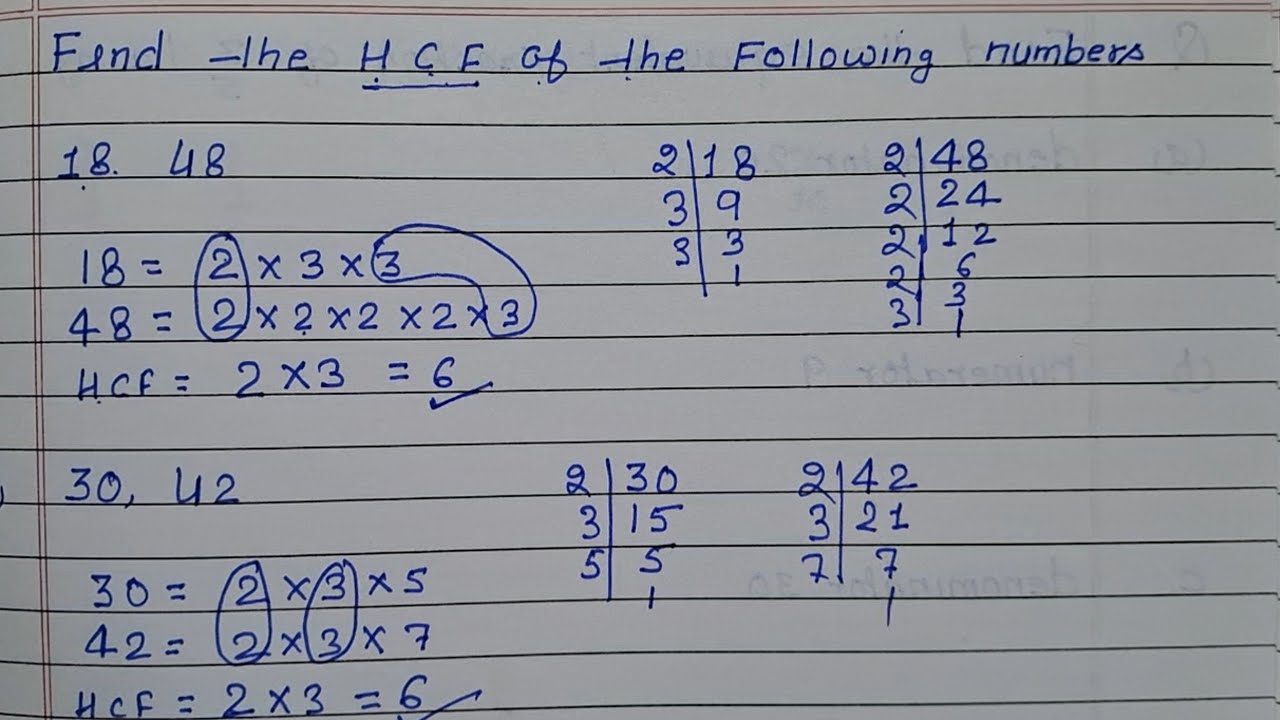 Find the HCF of the Following numbers
18. 48
2 | 18
3 | 9
3 | 3
1
2 | 48
2 | 24
2 | 12
2 | 6
3 | 3
1
18 = 2 × 3 × 3
48 = 2 × 2 × 2 × 2 × 3
HCF = 2 × 3 = 6
30, 42
2 | 30
3 | 15
5 | 5
1
2 | 42
3 | 21
7 | 7
1
30 = 2 × 3 × 5
42 = 2 × 3 × 7
HCF = 2 × 3 = 6